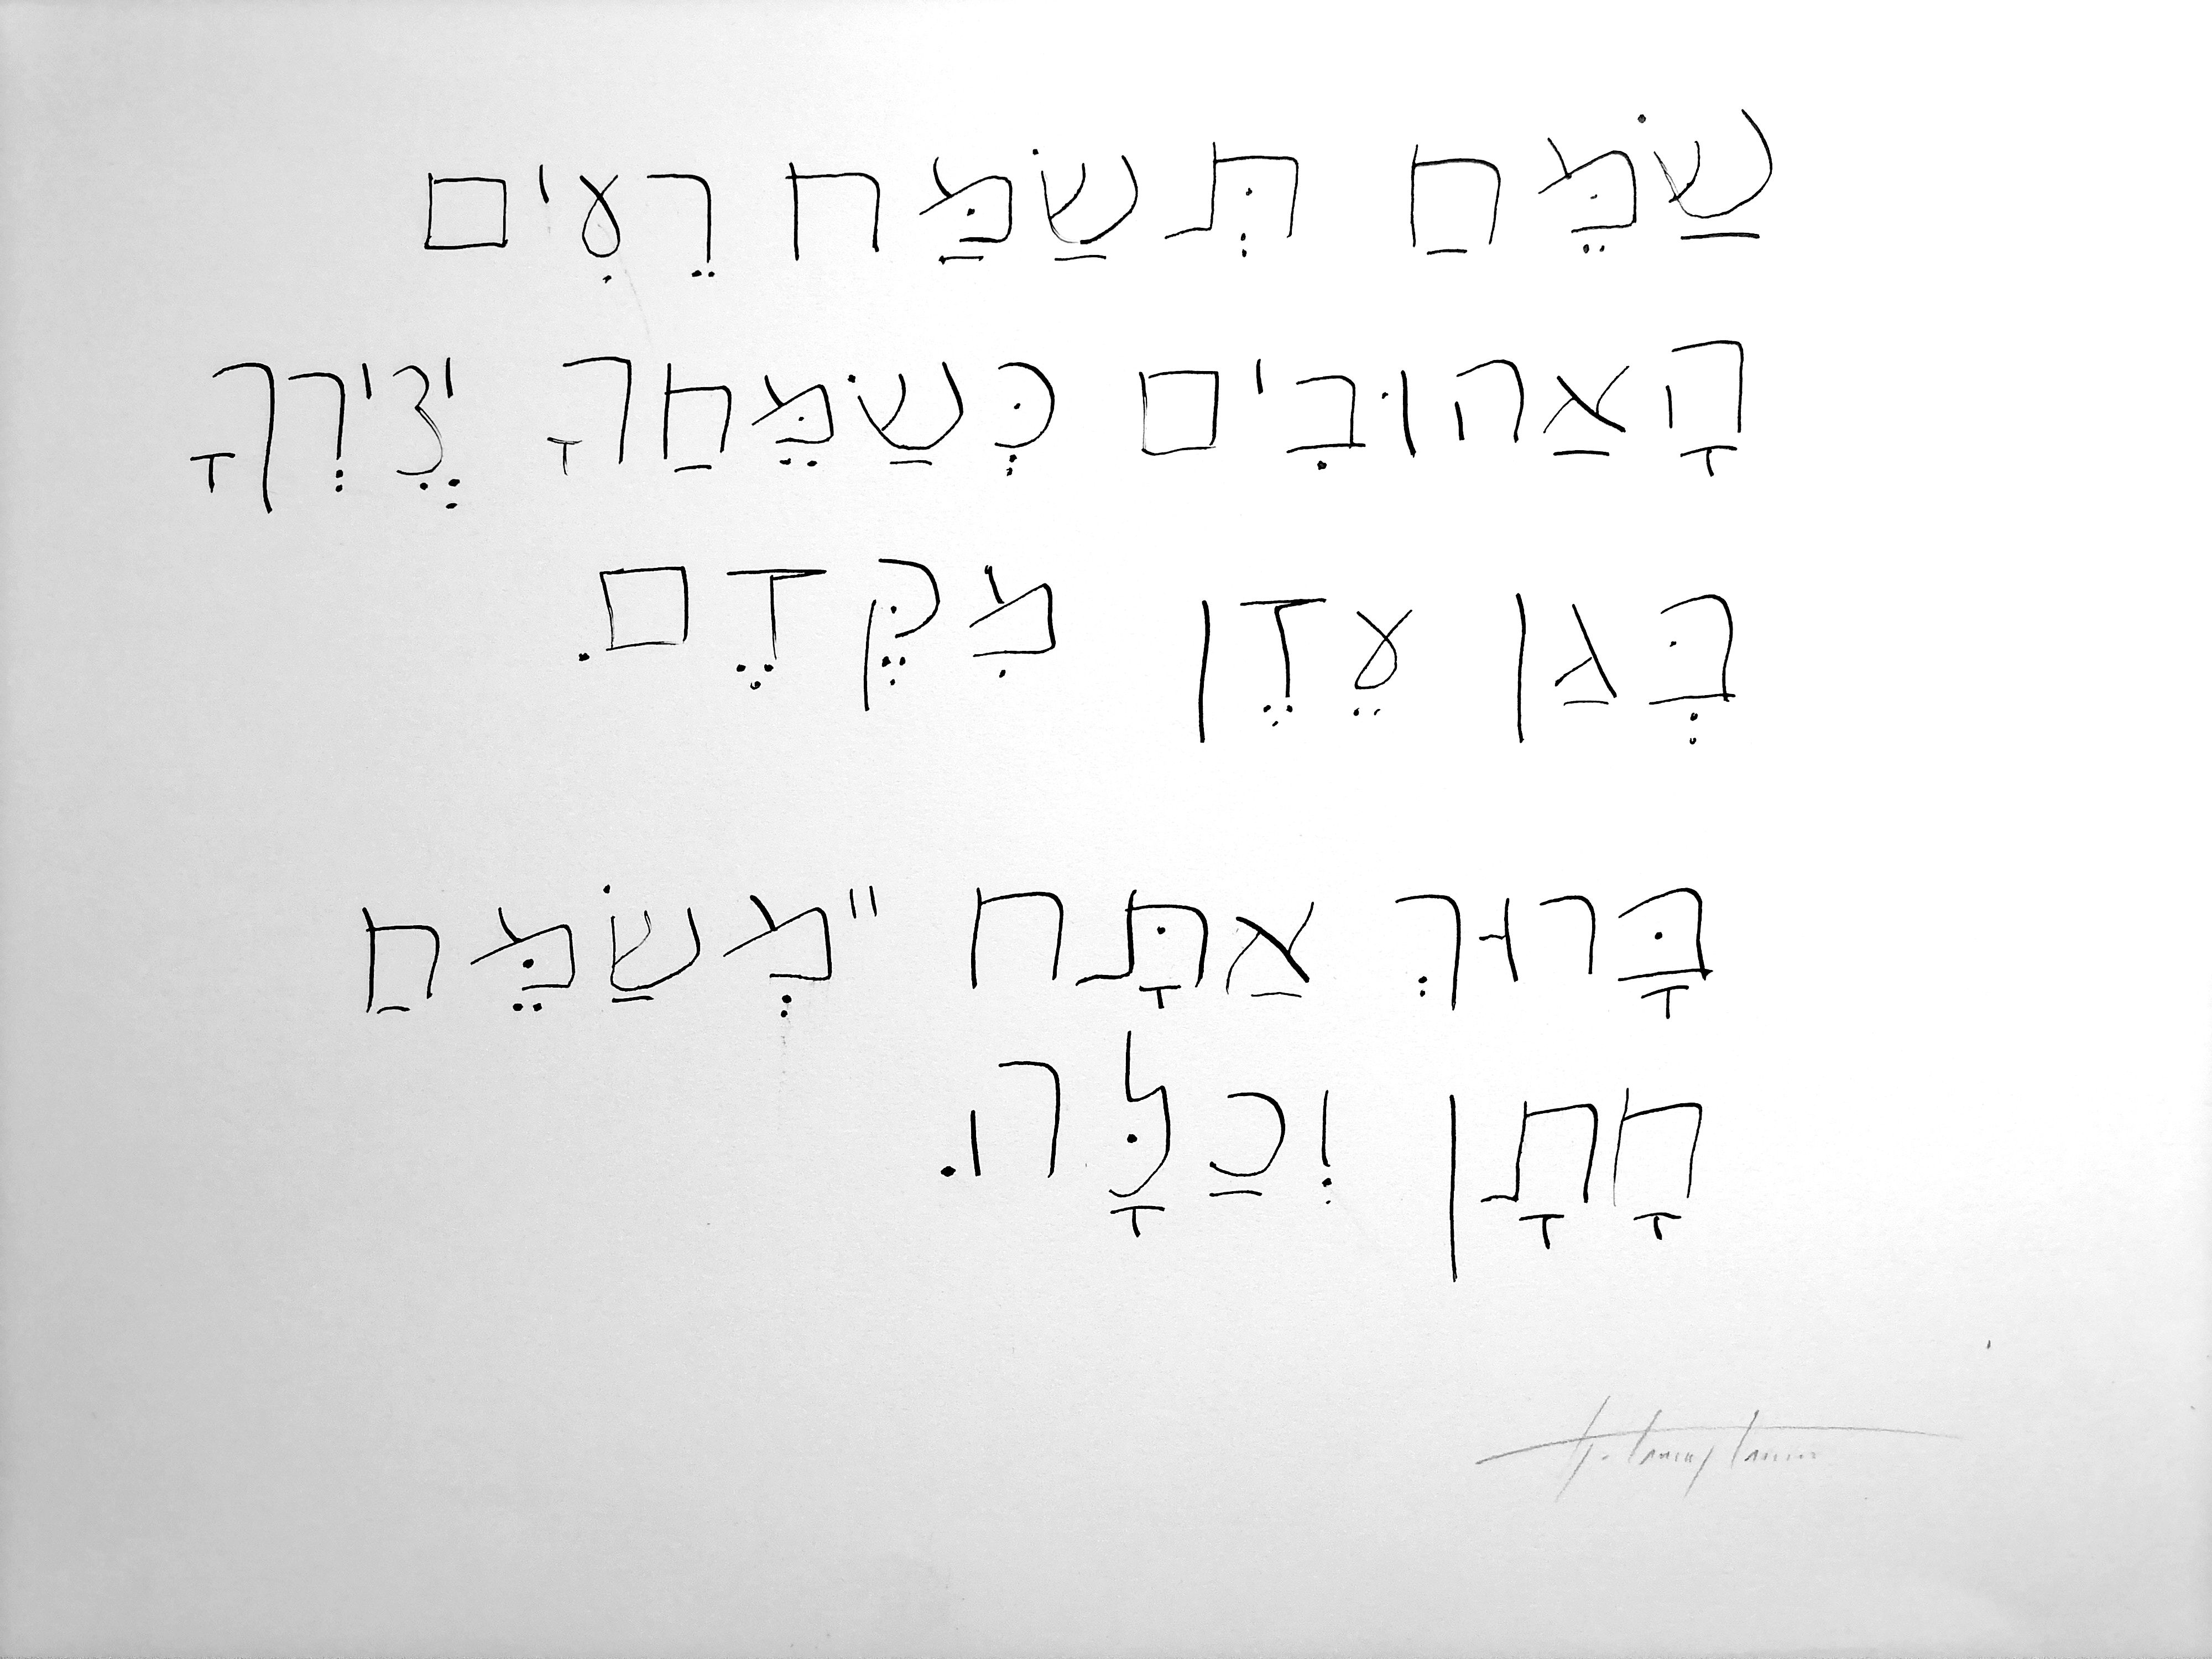 שַׂמֵּחַ תְּשַׂמַּח רֵעִים
הָאַהוּבִים כְּשַׂמֵּחַךָ יְצִירְךָ
בְּגַן עֵדֶן מִקֶּדֶם.
בָּרוּךְ אַתָּח יי מְשַׂמֵּחַ
חָתָן וְכַלָּה.